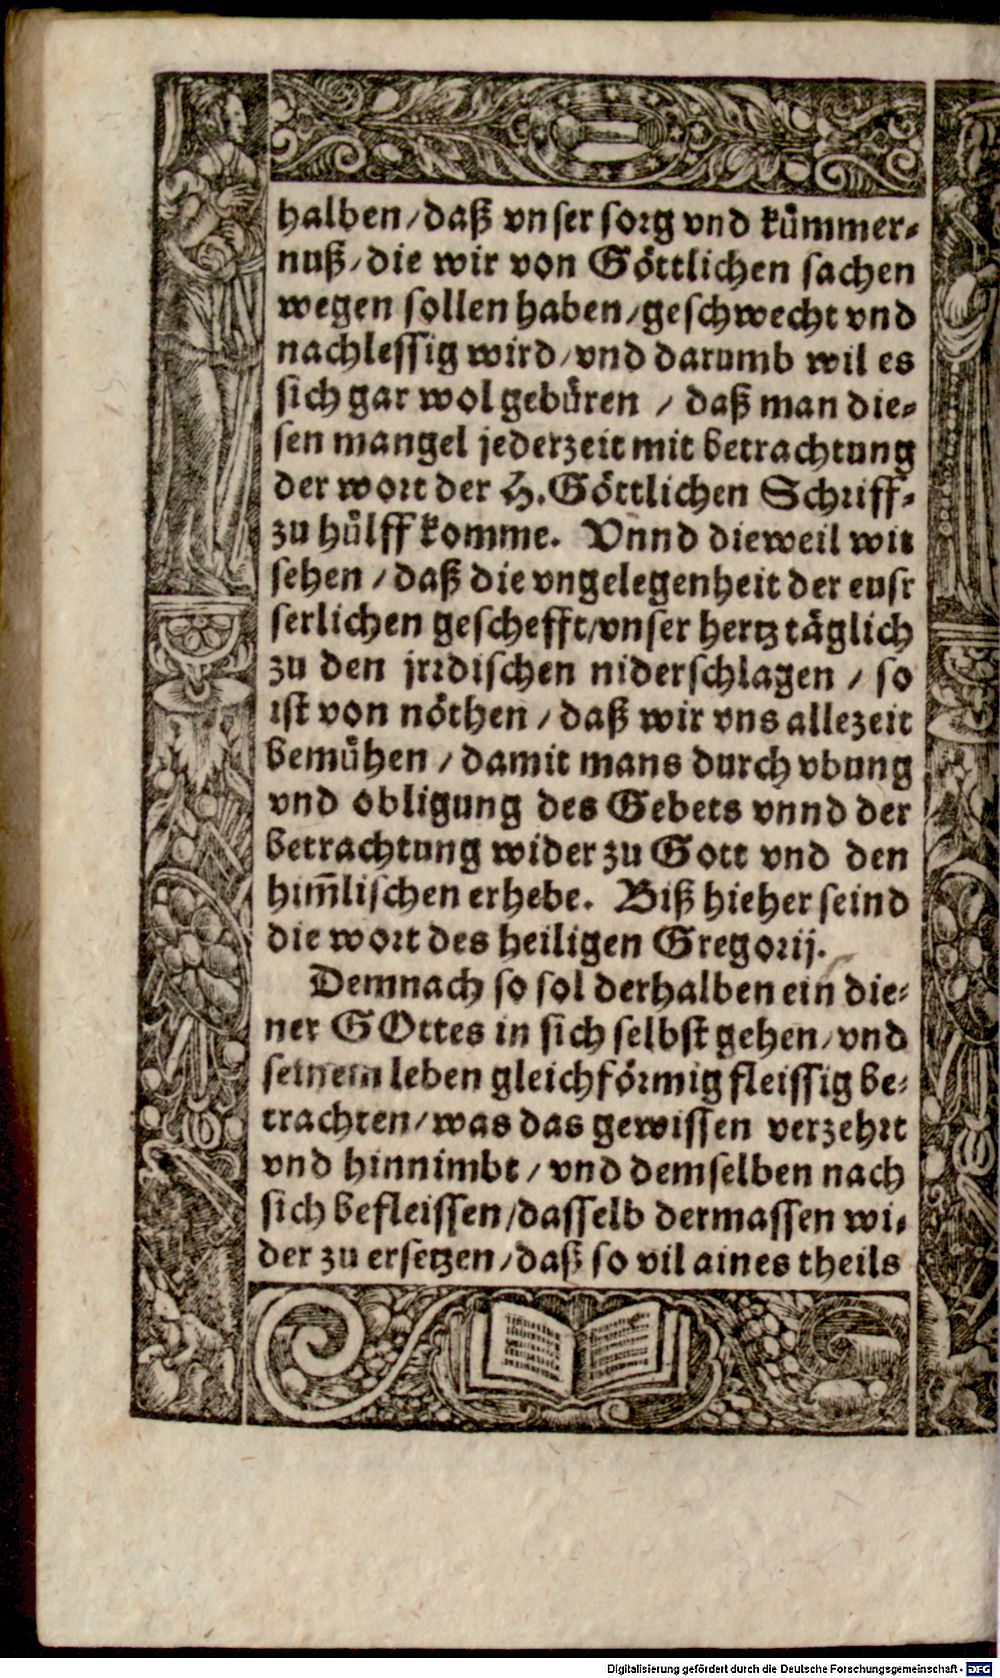 halben/daß vnser sorg vnd kům̃er⸗
nuß/die wir von Göttlichen sachen
wegen sollen haben/geschwecht vnd
nachlessig wird/vnd darumb wil es
sich gar wol gebüren / daß man die⸗
sen mangel jederzeit mit betrachtung
der wort der H. Göttlichen Schriff⸗
zu hůlff komme. Vnnd dieweil wir
sehen / daß die vngelegenheit der eusr
serlichen geschefft/vnser hertz täglich
zu den jrrdischen niderschlagen / so
ist von nöthen / daß wir vns allezeit
bemůhen / damit mans durch vbung
vnd obligung des Gebets vnnd der
betrachtung wider zu Gott vnd den
him̃lischen erhebe. Biß hieher seind
die wort des heiligen Gregorij.
Demnach so sol derhalben ein die⸗
ner GOttes in sich selbst gehen/vnd
seinem leben gleichförmig fleissig be⸗
trachten/was das gewissen verzehrt
vnd hinnimbt / vnd demselben nach
sich befleissen/dasselb dermassen wi⸗
der zu ersetzen/daß so vil aines theils
Digitalisierung gefördert durch die Deutsche Forschungsgemeinschaft - DFG